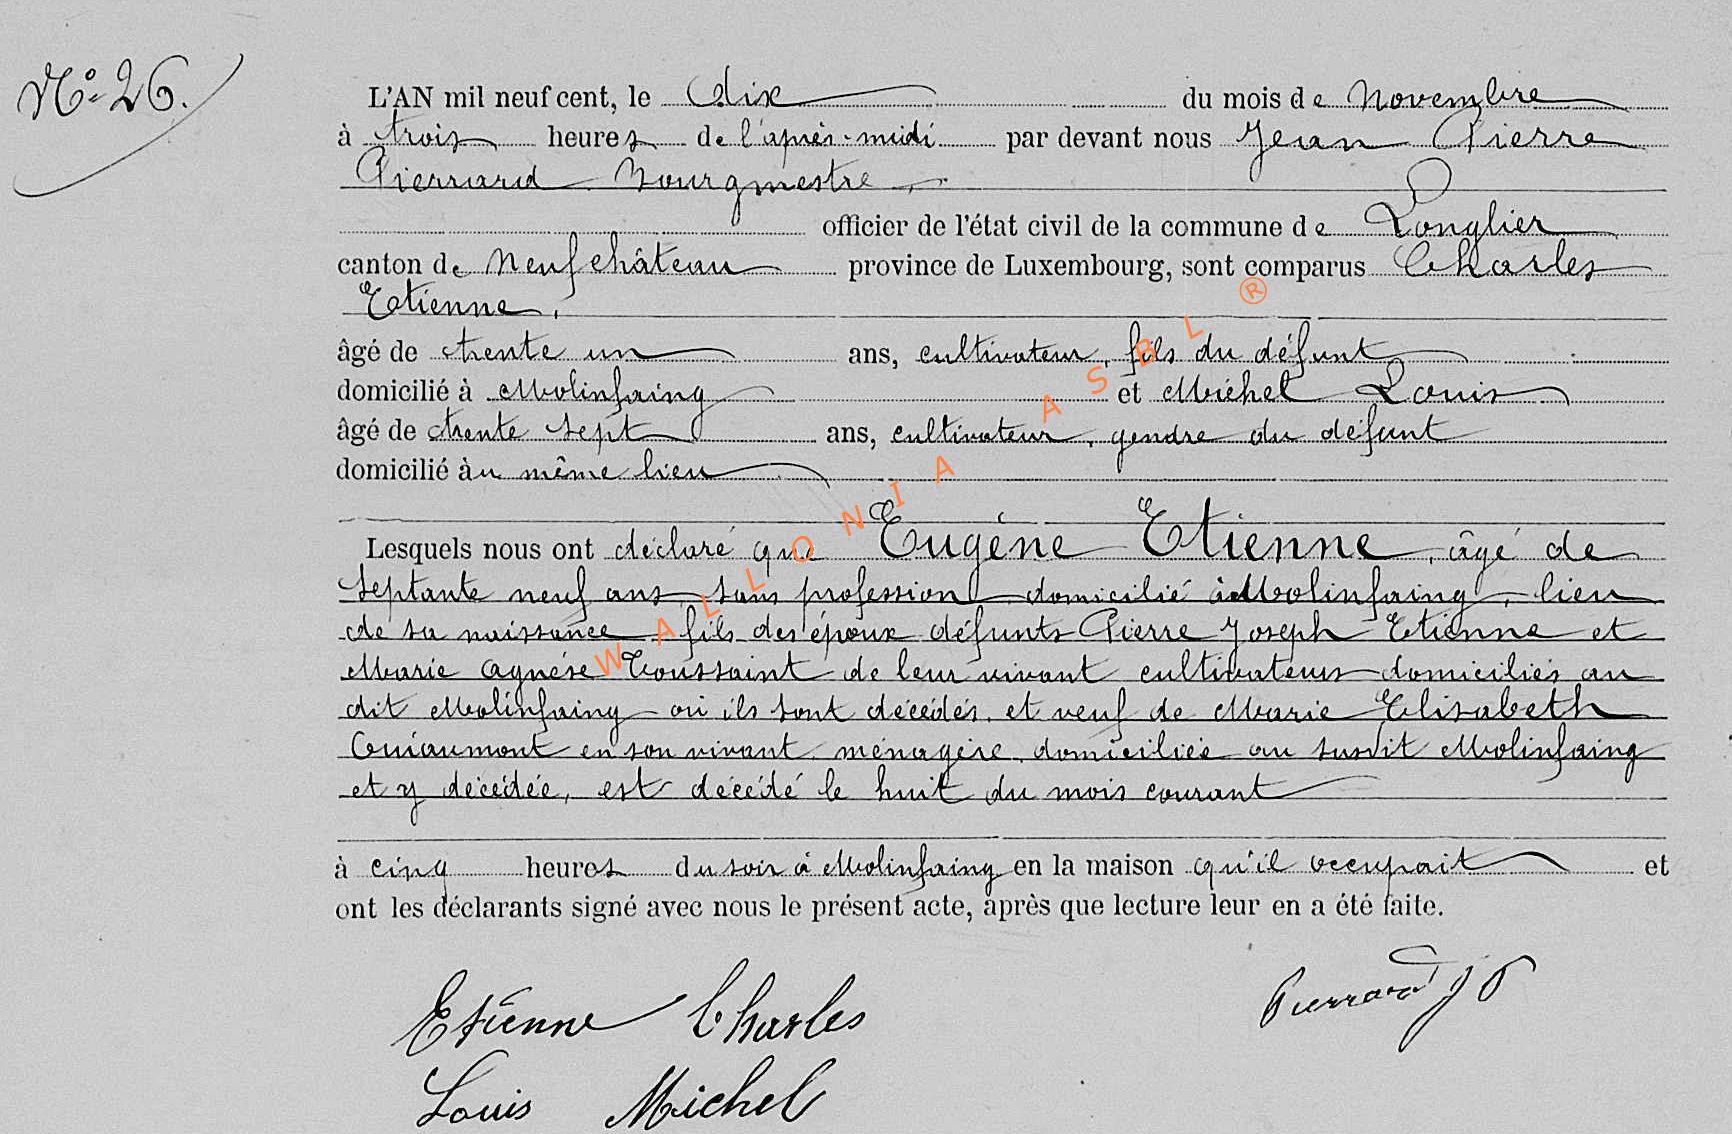 N° 26.
L'AN mil neuf cent, le dix du mois de Novembre
à trois heures de l'après-midi par devant nous Jean Pierre
Pierrard Bourgmestre,
officier de l'état civil de la commune de Longlier
canton de Neufchâteau province de Luxembourg, sont comparus Charles
Etienne,
âgé de trente un ans, cultivateur, fils du défunt
domicilié à Molinfaing et Michel Louis
âgé de trente sept ans, cultivateur, gendre du défunt
domicilié au même lieu
Lesquels nous ont déclaré que Eugène Etienne, âgé de
septante neuf ans, sans profession domicilié à Molinfaing, lieu
de sa naissance, fils des époux défunts Pierre Joseph Etienne et
Marie Agnése Toussaint de leur vivant cultivateurs domiciliés au
dit Molinfaing où ils sont décédés, et veuf de Marie Elisabeth
en son vivant ménagère domiciliée au susdit Molinfaing
et y décédée, est décédé le huit du mois courant
à cinq heures du soir à Molinfaing en la maison qu'il occupait et
ont les déclarants signé avec nous le présent acte, après que lecture leur en a été faite.
Etienne Charles
Pierrard J P
Louis Michel
WALLONIA ASBL ®